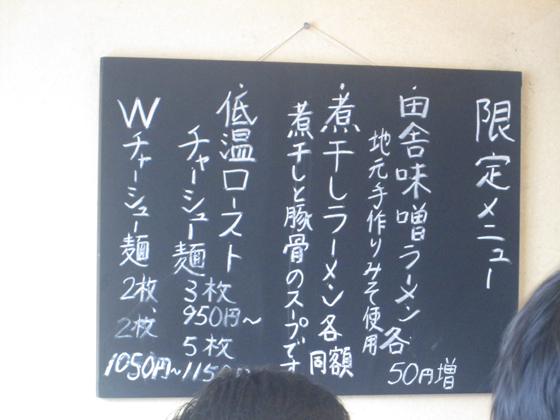 限定メニュー
・田舎味噌ラーメン各
50円増
地元手作りみそ使用
・煮干しラーメン各
同額
煮干しと豚骨のスープです
・低温ロースト
チャーシュー麺
3枚
950円〜
5枚
1150円
Wチャーシュー麺
2枚、
2枚
1050円〜